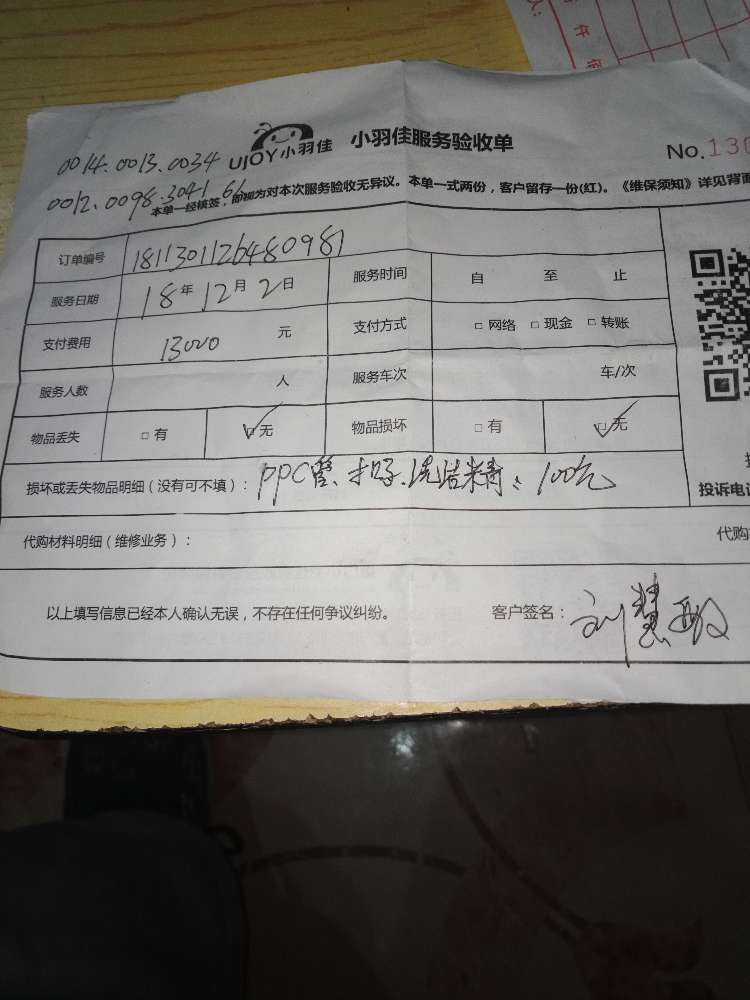 0014.0013.0034 UJOY小羽佳 小羽佳服务验收单 No.130
0012.0098.3041.66
本单一经核签，即视为对本次服务验收无异议。本单一式两份，客户留存一份(红)。《维保须知》详见背面
订单编号 181130112648098
服务日期 18年12月2日 服务时间 自 至 止
支付费用 13000 元 支付方式 □ 网络 □ 现金 □ 转账
服务人数 人 服务车次 车/次
物品丢失 □ 有 ☑ 无 物品损坏 □ 有 ☑ 无
损坏或丢失物品明细（没有可不填）： PPC管、扣子、洗洁精： 100元
投诉电话
代购材料明细（维修业务）： 代购
以上填写信息已经本人确认无误，不存在任何争议纠纷。 客户签名： 刘慧敏